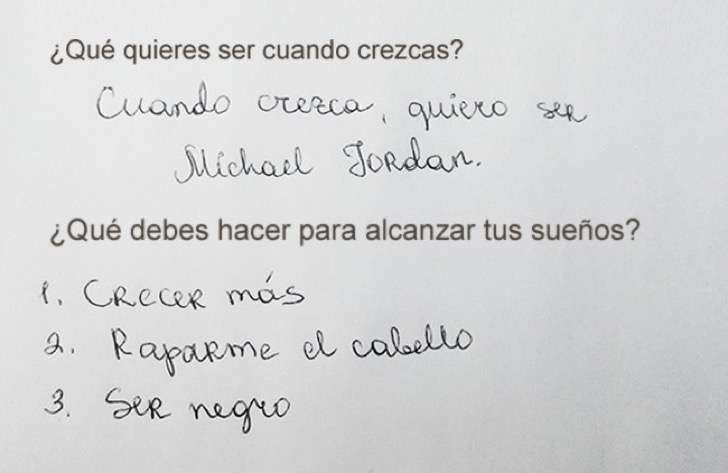 ¿Qué quieres ser cuando crezcas?
Cuando crezca, quiero ser
Michael Jordan.
¿Qué debes hacer para alcanzar tus sueños?
1. Crecer más
2. Raparme el cabello
3. Ser negro